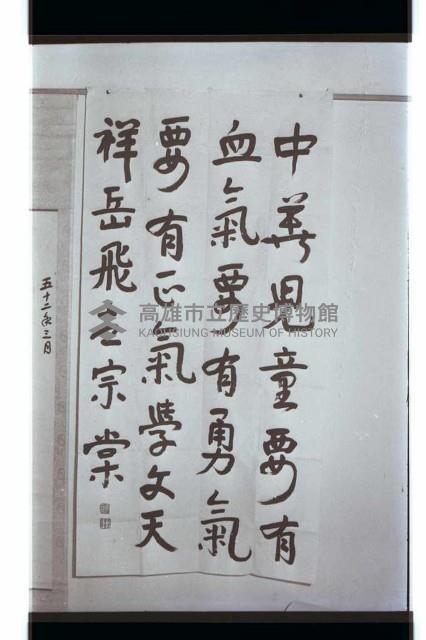 中華兒童要有
血氣要有勇氣
要有正氣學文天
祥岳飛左宗棠
五十二年三月
高雄市立歷史博物館
KAOHSIUNG MUSEUM OF HISTORY